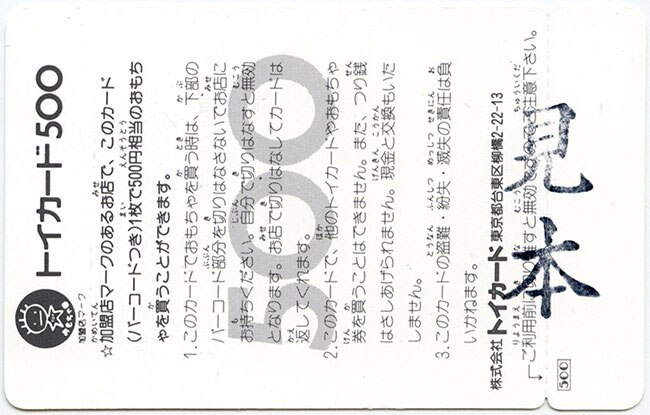 加盟店マーク
トイカード500
☆加盟店マークのあるお店で、このカード
（バーコードつき）1枚で500円相当のおもち
ゃを買うことができます。
1.このカードでおもちゃを買う時は、下部の
バーコード部分を切りはなさないでお店に
お持ちください。自分で切りはなすと無効
となります。お店で切りはなしてカードは
返してくれます。
2.このカードで、他のトイカードやおもちゃ
券を買うことはできません。また、つり銭
はさしあげられません。現金と交換もいた
しません。
3.このカードの盗難・紛失・滅失の責任は負
いかねます。
500
株式会社トイカード 東京都台東区柳橋2-22-13
ご利用前に切り離すと無効
ご注意下さい。
見本
500